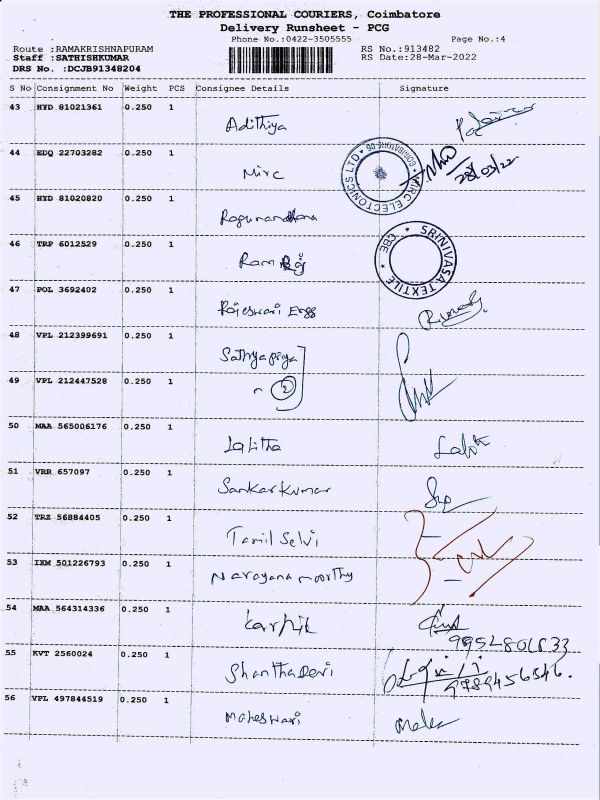 THE PROFESSIONAL COURIERS, Coimbatore
Delivery Runsheet - PCG
Phone No.:0422-3505555 Page No.:4
Route :RAMAKRISHNAPURAM RS No.:913482
Staff :SATHISHKUMAR RS Date:28-Mar-2022
DRS No. :DCJB91348204
S No Consignment No Weight PCS Consignee Details Signature
43 HYD 81021361 0.250 1 Adithiya
44 EDQ 22703282 0.250 1 Mirc 28/03/22
MIRC ELECTONICS LTD
45 HYD 81020820 0.250 1
46 TRP 6012529 0.250 1 Ram Raj
SRINIVASA TEXTILE * CBE *
47 POL 3692402 0.250 1 Rajeswari Engg
48 VPL 212399691 0.250 1 Sathyapriya
49 VPL 212447528 0.250 1 " 2
50 MAA 565006176 0.250 1 Lalitha
51 VRR 657097 0.250 1 Sankarkumar
52 TRZ 56884405 0.250 1 Tamil Selvi
53 IXM 501226793 0.250 1 Narayana moorthy
54 MAA 564314336 0.250 1 Karthik
55 KVT 2560024 0.250 1 Shantha Devi
9789456546.
56 VPL 497844519 0.250 1 Maheswari